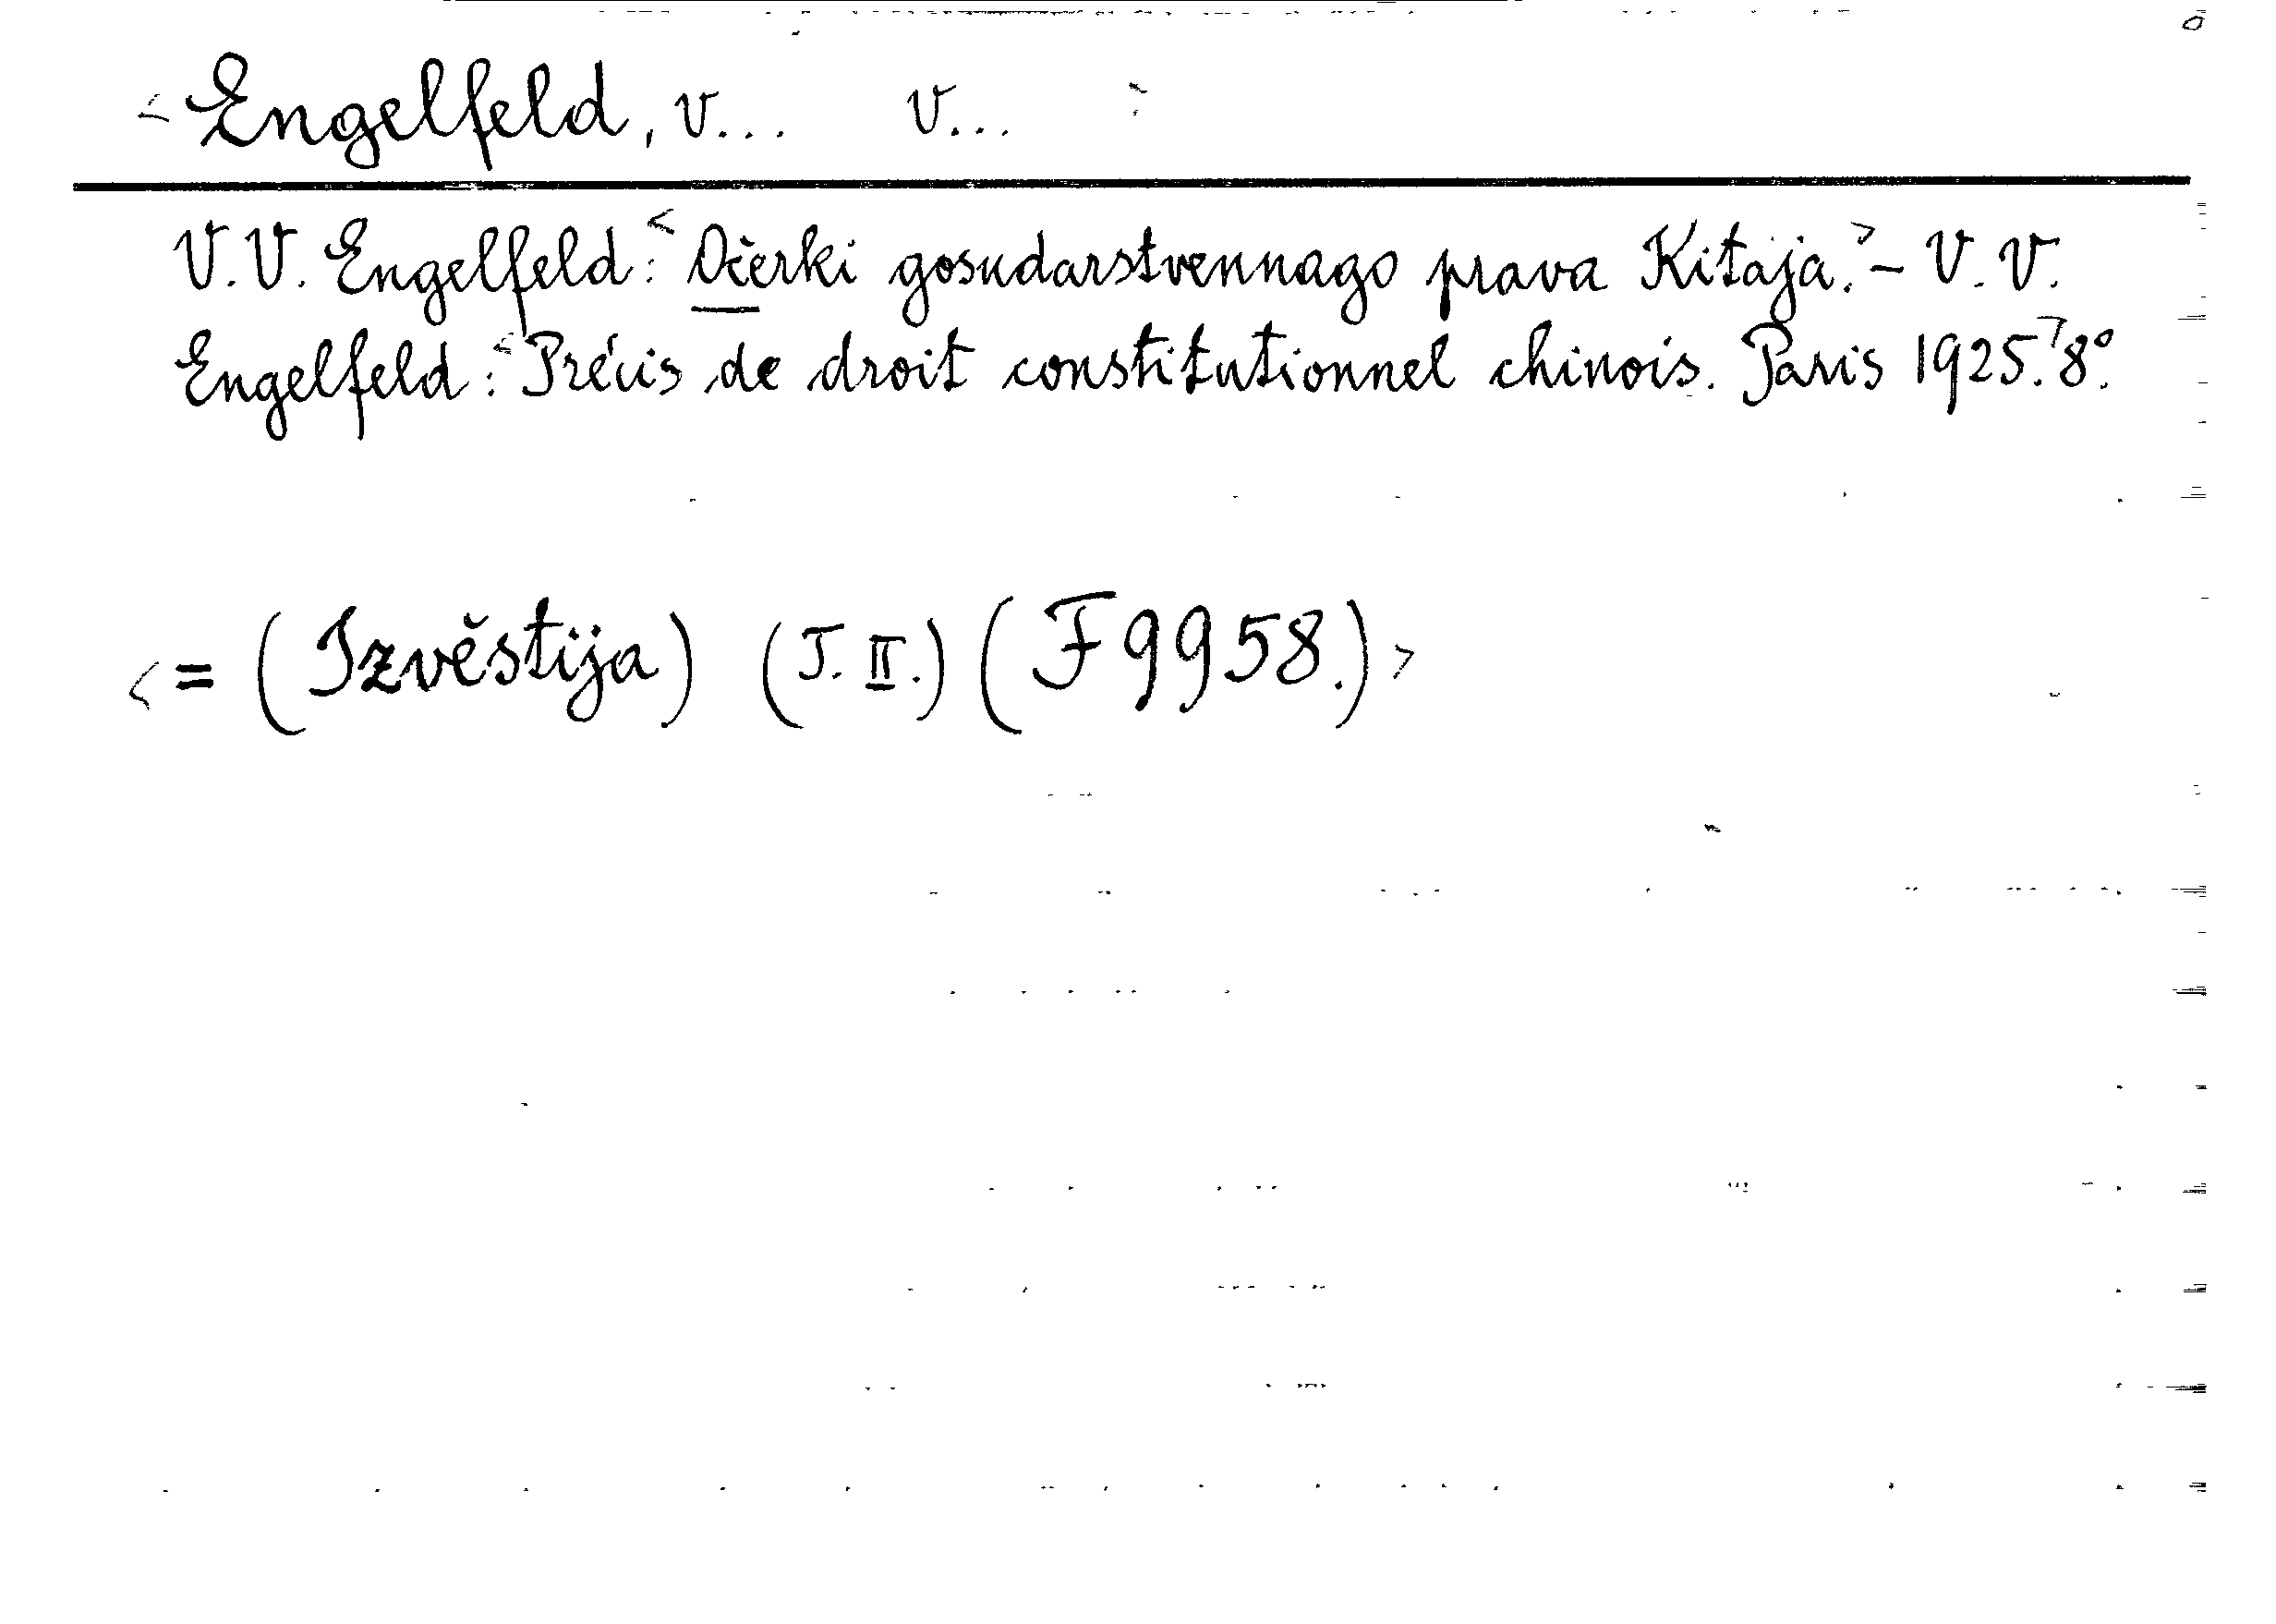 <Engelfeld, V... V...>
V.V. Engelfeld: <Očerki gosudarstvennago prava Kitaja.> – V.V.
Engelfeld: <Précis de droit constitutionnel chinois. Paris 1925.> 8°.
<= (Izvěstija) (T. II.) (F 9958.)>